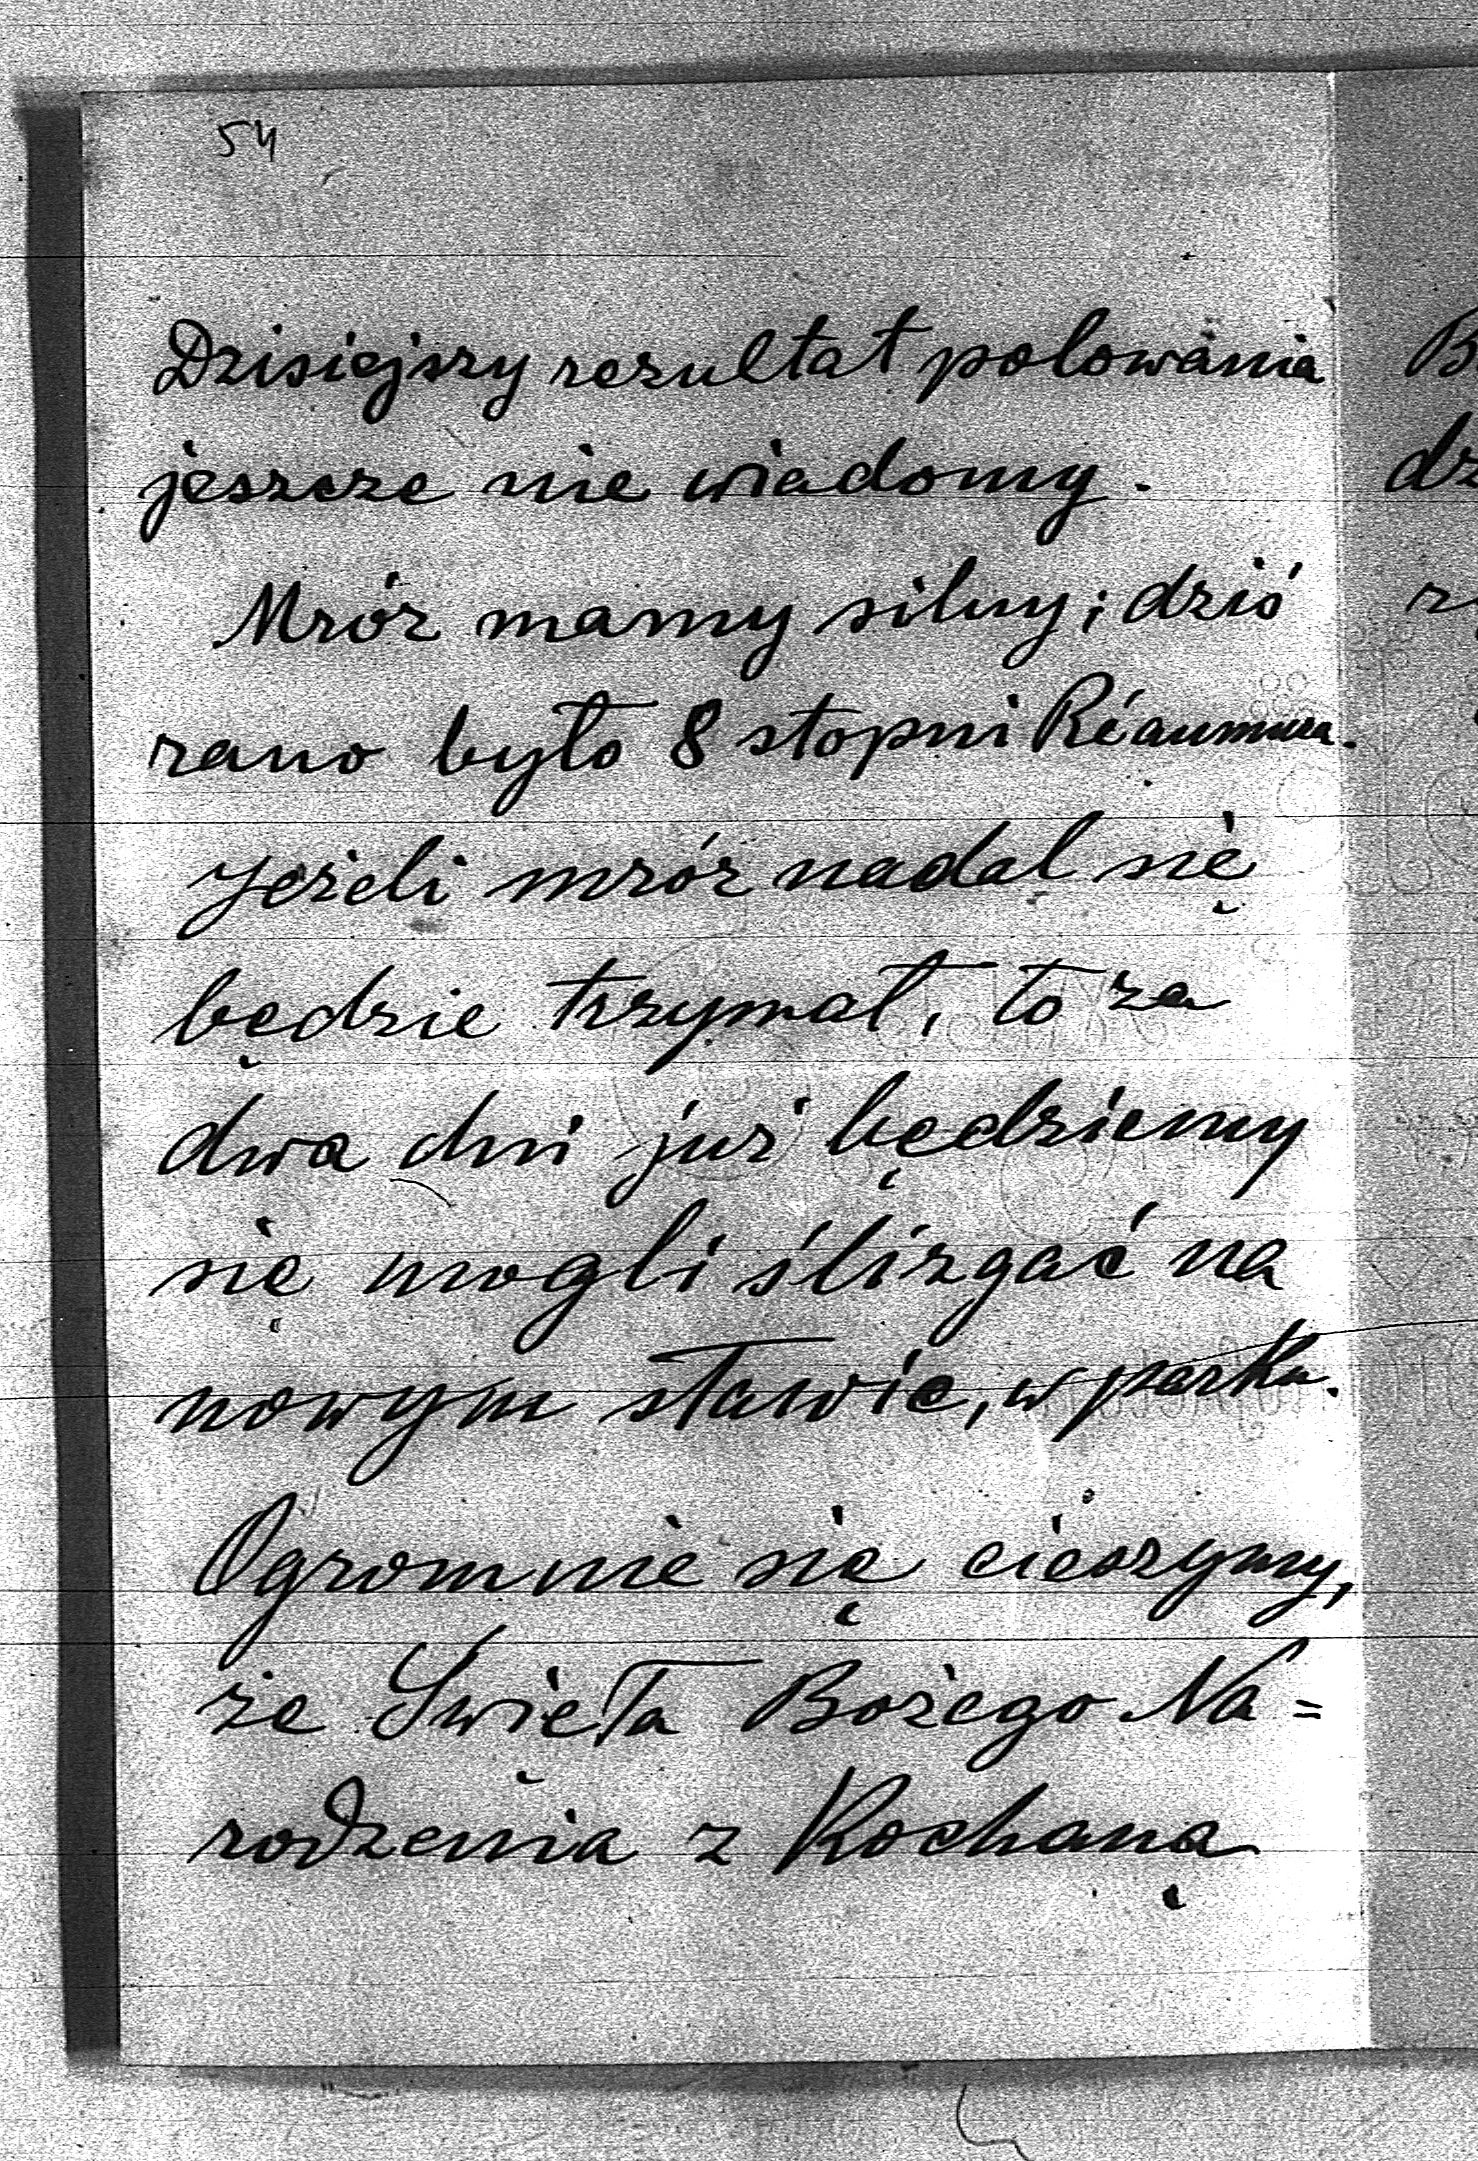 54
Dzisiejszy rezultat polowania
jeszcze nie wiadomy.
Mróz mamy silny; dziś
rano było 8 stopni Réaumura.
Jeżeli mróz nadal się
będzie trzymał, to za
dwa dni już będziemy
się mogli ślizgać na
nowym stawie, w parku.
Ogromnie się cieszymy,
że Święta Bożego Na=
rodzenia z Kochaną